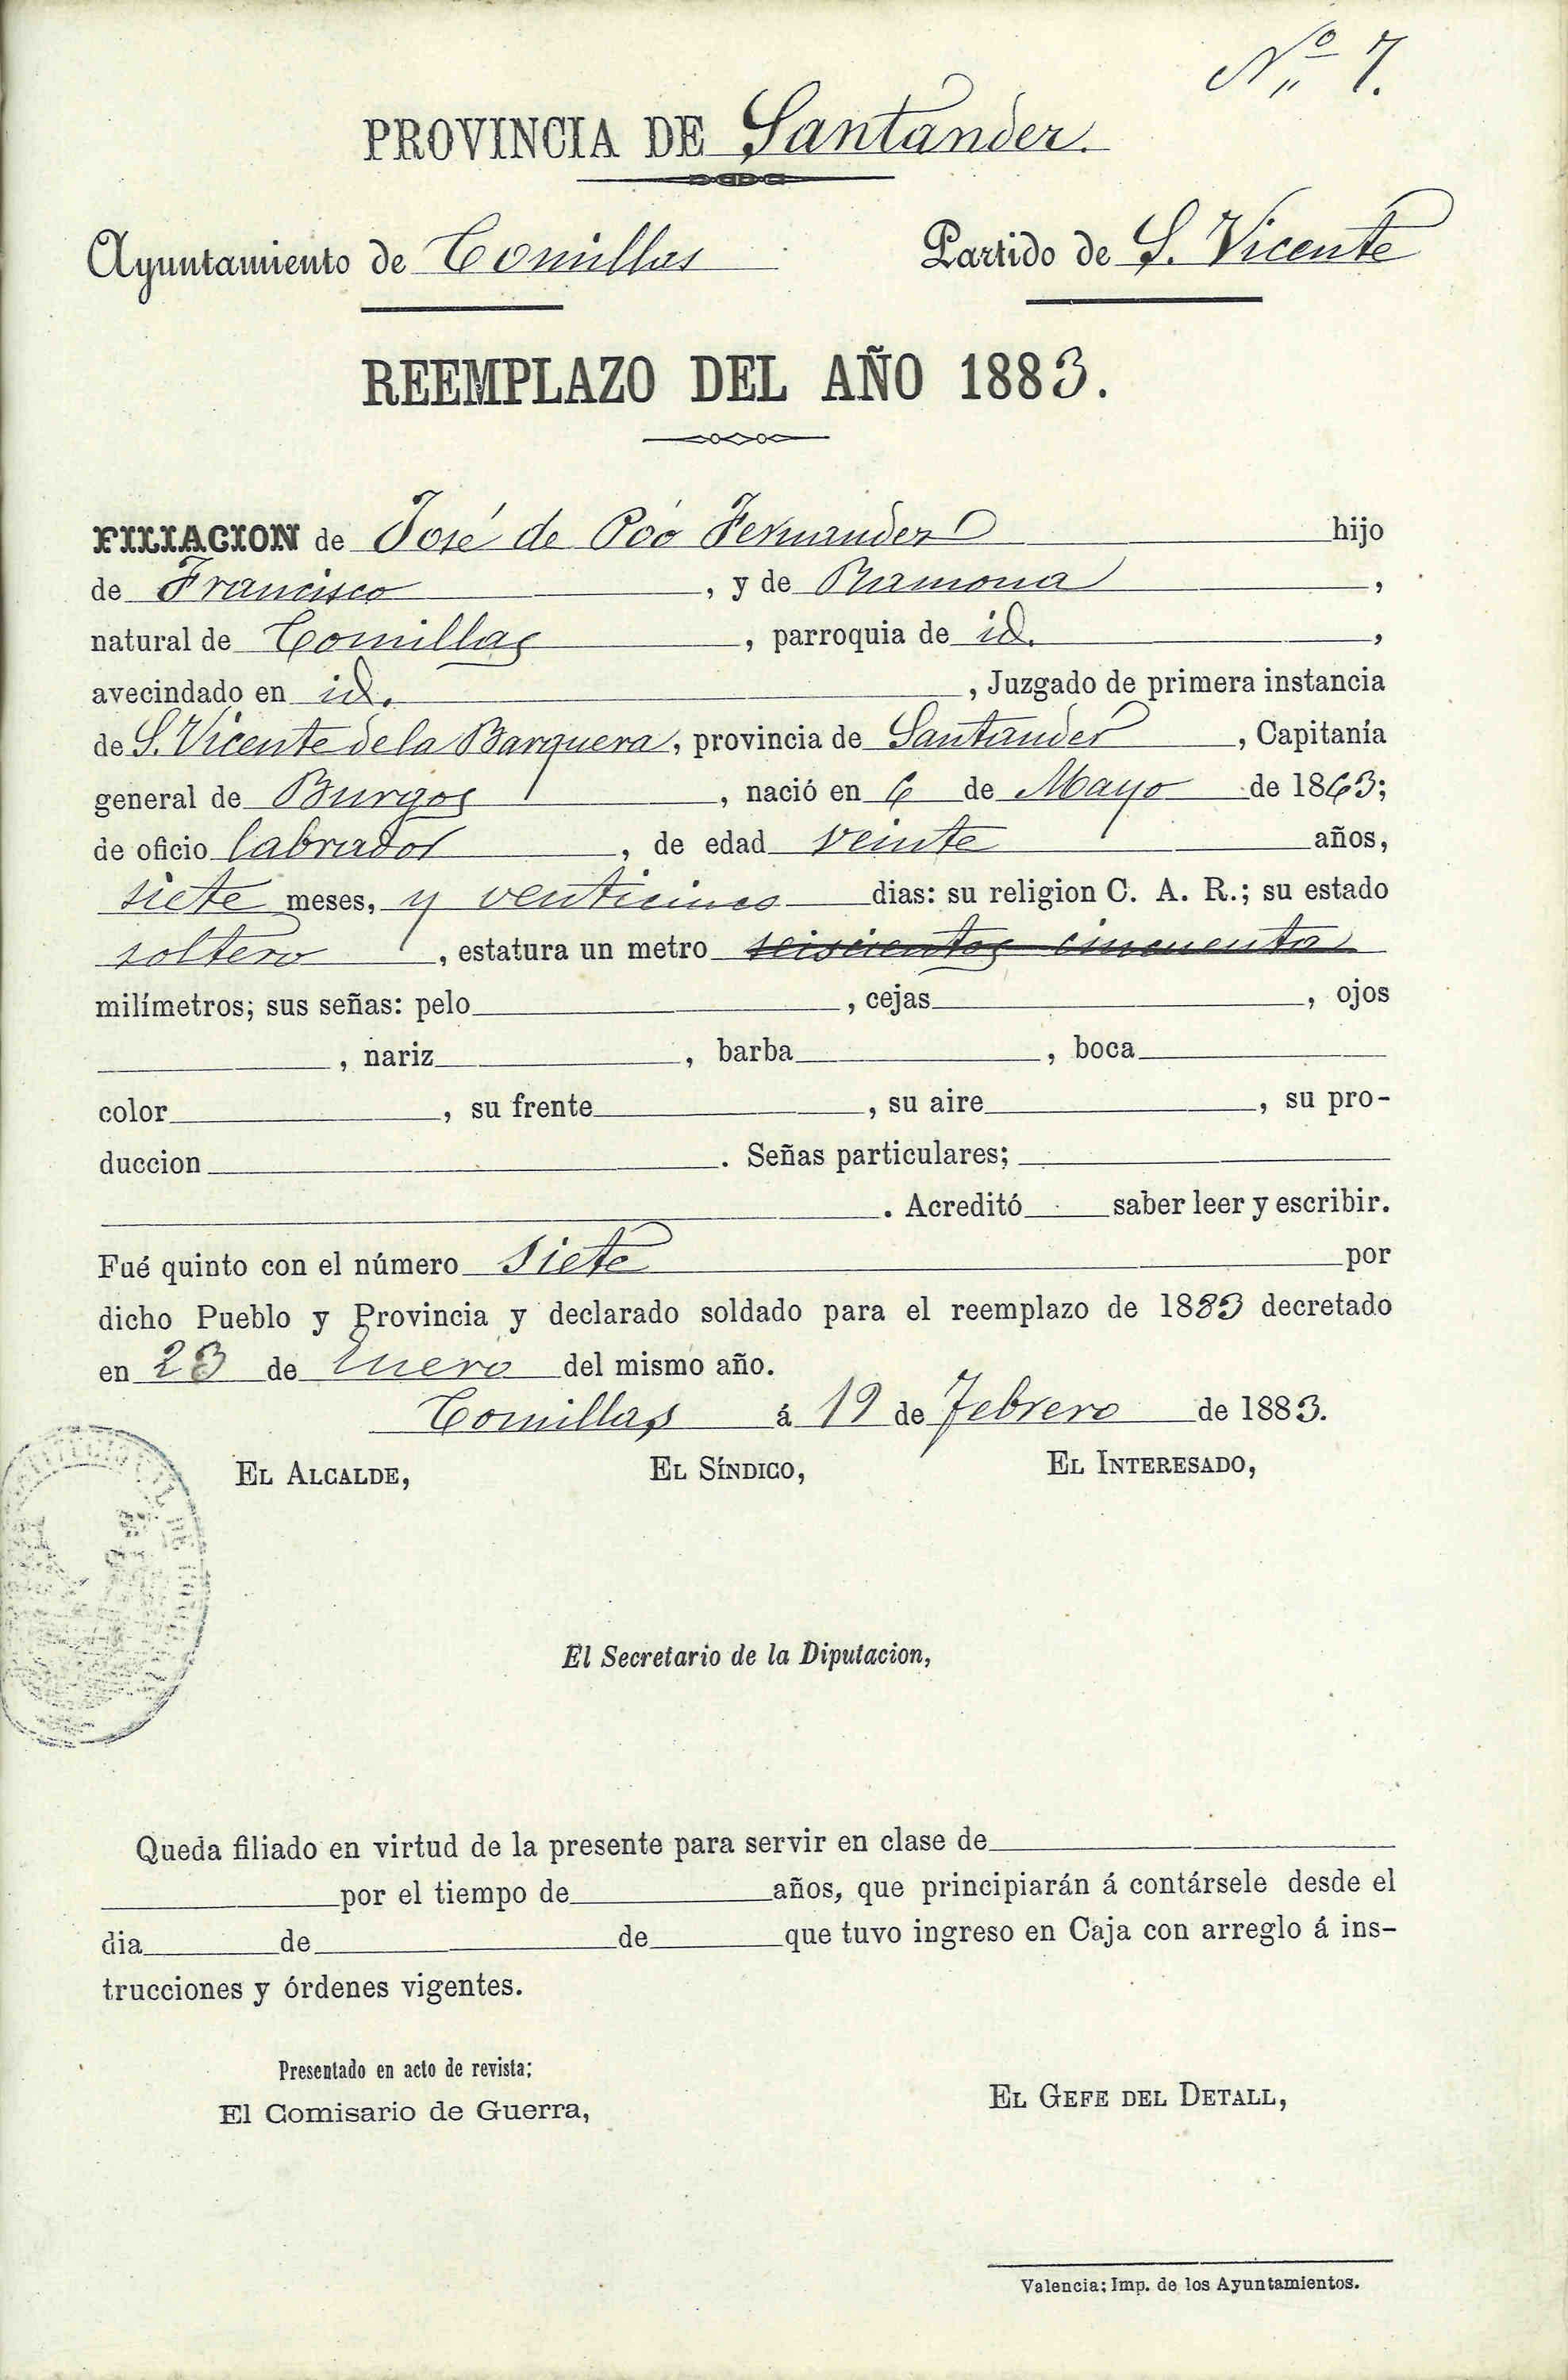 Nº 7.
PROVINCIA DE Santander.
Ayuntamiento de Comillas Partido de S. Vicente
REEMPLAZO DEL AÑO 1883.
FILIACION de José de Poo Fernandez hijo
de Francisco, y de Ramona,
natural de Comillas, parroquia de id.,
avecindado en id., Juzgado de primera instancia
de S. Vicente de la Barquera, provincia de Santander, Capitanía
general de Burgos, nació en 6 de Mayo de 1863;
de oficio labrador, de edad veinte años,
siete meses, y venticinco dias: su religion C. A. R.; su estado
soltero, estatura un metro seiscientos cincuenta
milímetros; sus señas: pelo, cejas, ojos
, nariz, barba, boca
color, su frente, su aire, su pro-
duccion. Señas particulares;
. Acreditó saber leer y escribir.
Fué quinto con el número Siete por
dicho Pueblo y Provincia y declarado soldado para el reemplazo de 1883 decretado
en 23 de Enero del mismo año.
Comillas á 19 de Febrero de 1883.
EL ALCALDE, EL SÍNDICO, EL INTERESADO,
El Secretario de la Diputacion,
Queda filiado en virtud de la presente para servir en clase de
por el tiempo de años, que principiarán á contársele desde el
dia de de que tuvo ingreso en Caja con arreglo á ins-
trucciones y órdenes vigentes.
Presentado en acto de revista;
El Comisario de Guerra,
EL GEFE DEL DETALL,
Valencia: Imp. de los Ayuntamientos.